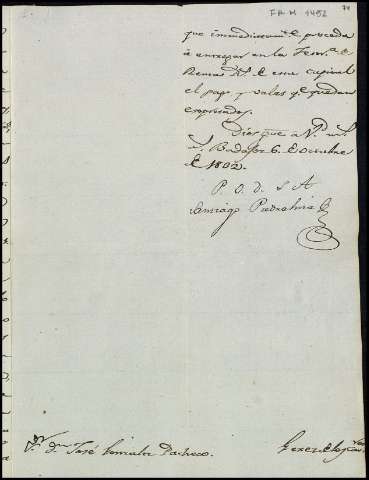 FA M 1452
que immediatamte. proceda
á entregar en la Tesora. de
Rentas Rs. de esta capital
el pago y vales qe. quedan
expresados.
Dios gue. a Vd. ms.
as. Badajoz 6. de Octubre
de 1802.
P. O. d. s A
Santiago Piedrahita
Sr. Dn. José Gonzalez Pacheco.
Xerez de los Cavros